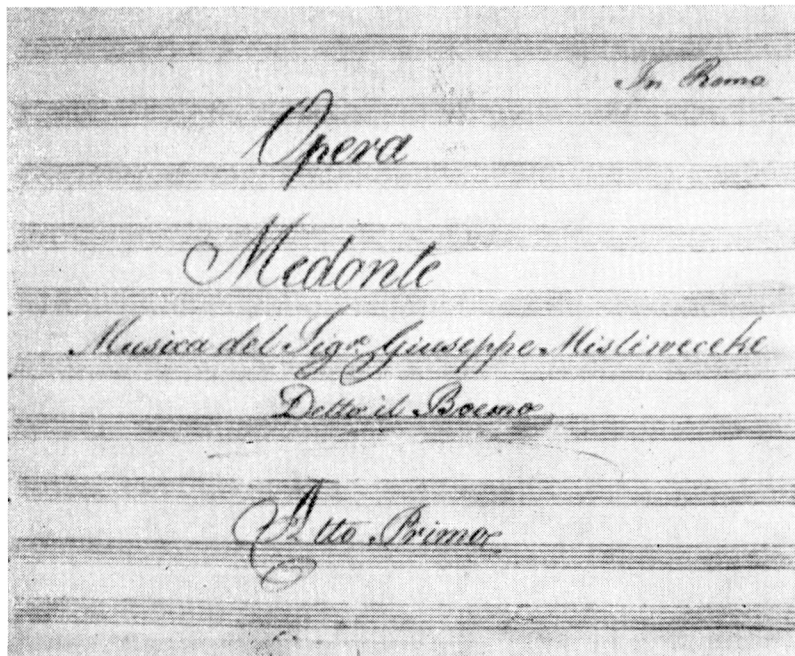 In Roma
Opera
Medonte
Musica del Sig.re Giuseppe Misliweceke
Detto il Boemo
Atto Primo